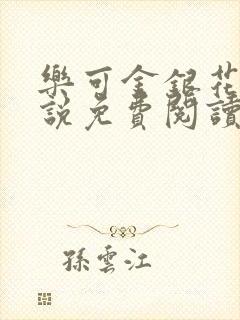 樂可金銀花
說免費閱讀
孫雲江